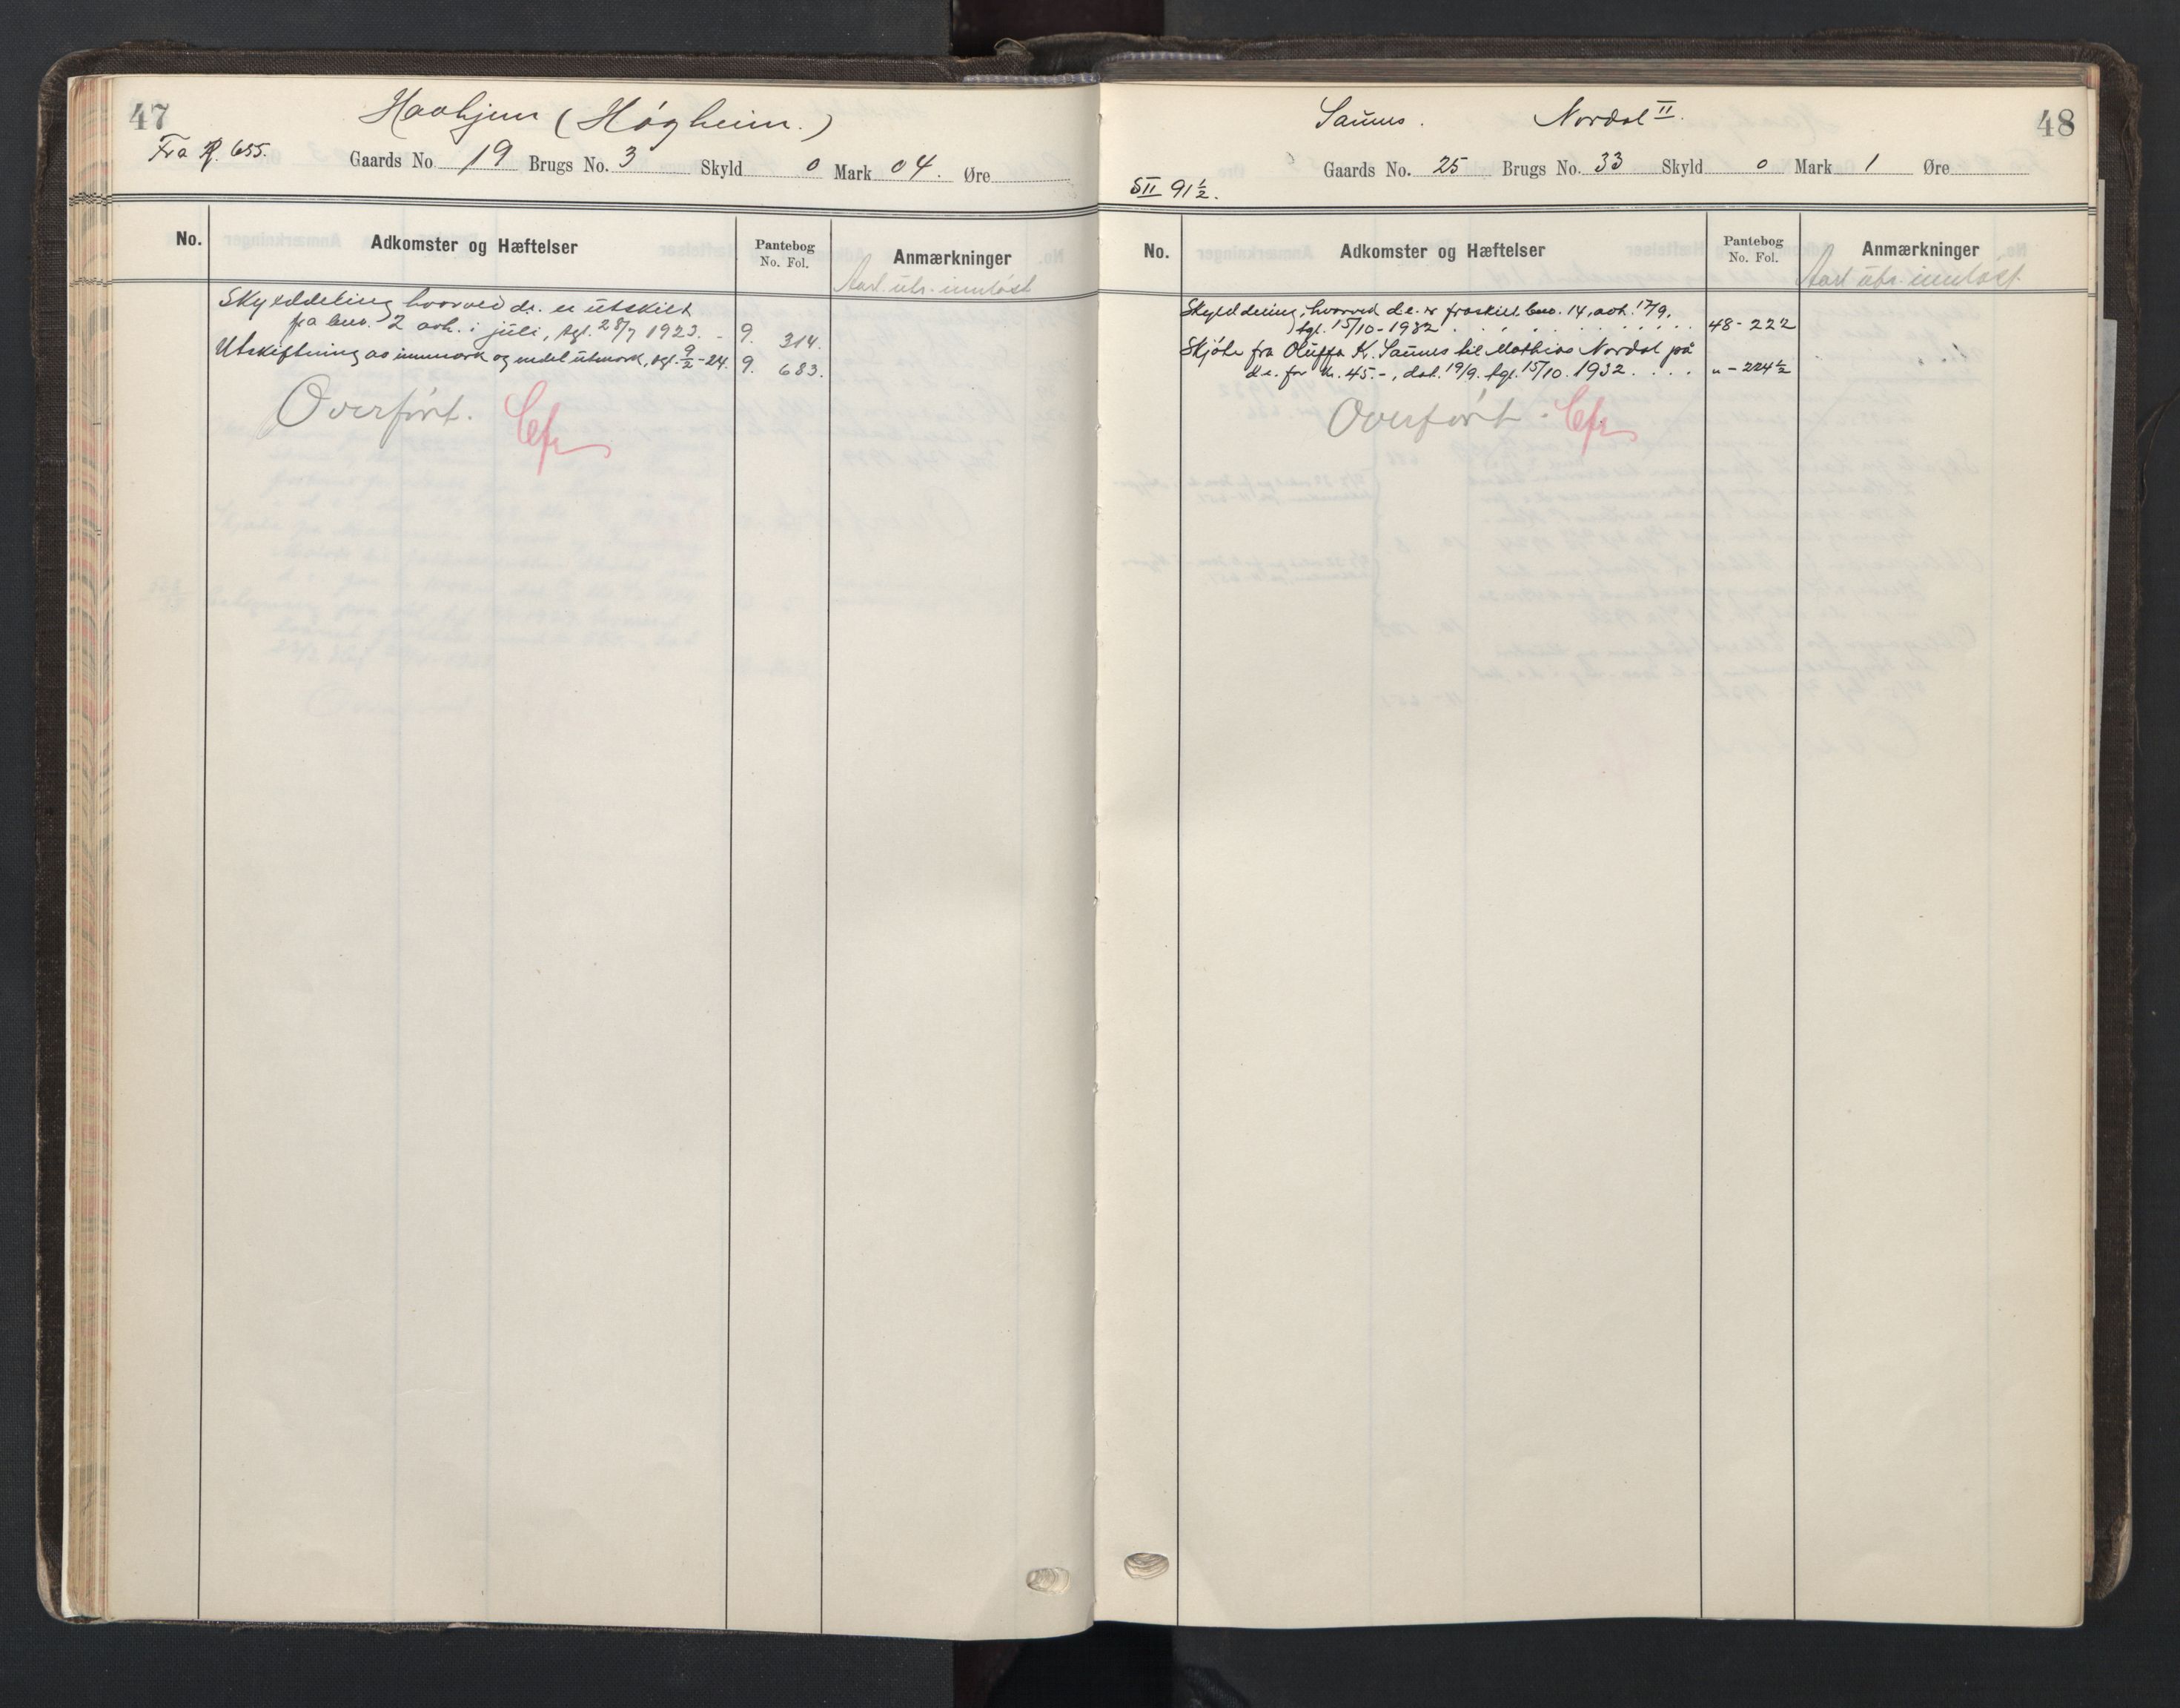 47
Haahjem (Høgheim.)
Fra R. 655.
Gaards No. 19 Brugs No. 3 Skyld 0 Mark 04. Øre
No. Adkomster og Hæftelser Pantebog No. Fol. Anmærkninger
Skylddeling hvorved d.e. er utskilt
fra bno. 2 avh. i juli, tgl. 28/7 1923. - 9. 314.
Utskiftning av innmark og endel utmark, tgl. 9/2-24. 9. 683.
Overført.
48
Saunes. Nordal II.
Gaards No. 25 Brugs No. 33 Skyld 0 Mark 1 Øre
SII 91 1/2.
No. Adkomster og Hæftelser Pantebog No. Fol. Anmærkninger
Skylddeling, hvorved d.e. er fraskilt bno. 14, avh. 17/9,
tgl. 15/10-1932 . . . . . . . . . 48 - 222
Skjøte fra Oluffa K. Saunes til Mathias Nordal på
d.e. for kr. 45.-, dat. 19/9. tgl. 15/10. 1932. . . . " - 224 1/2
Overført.